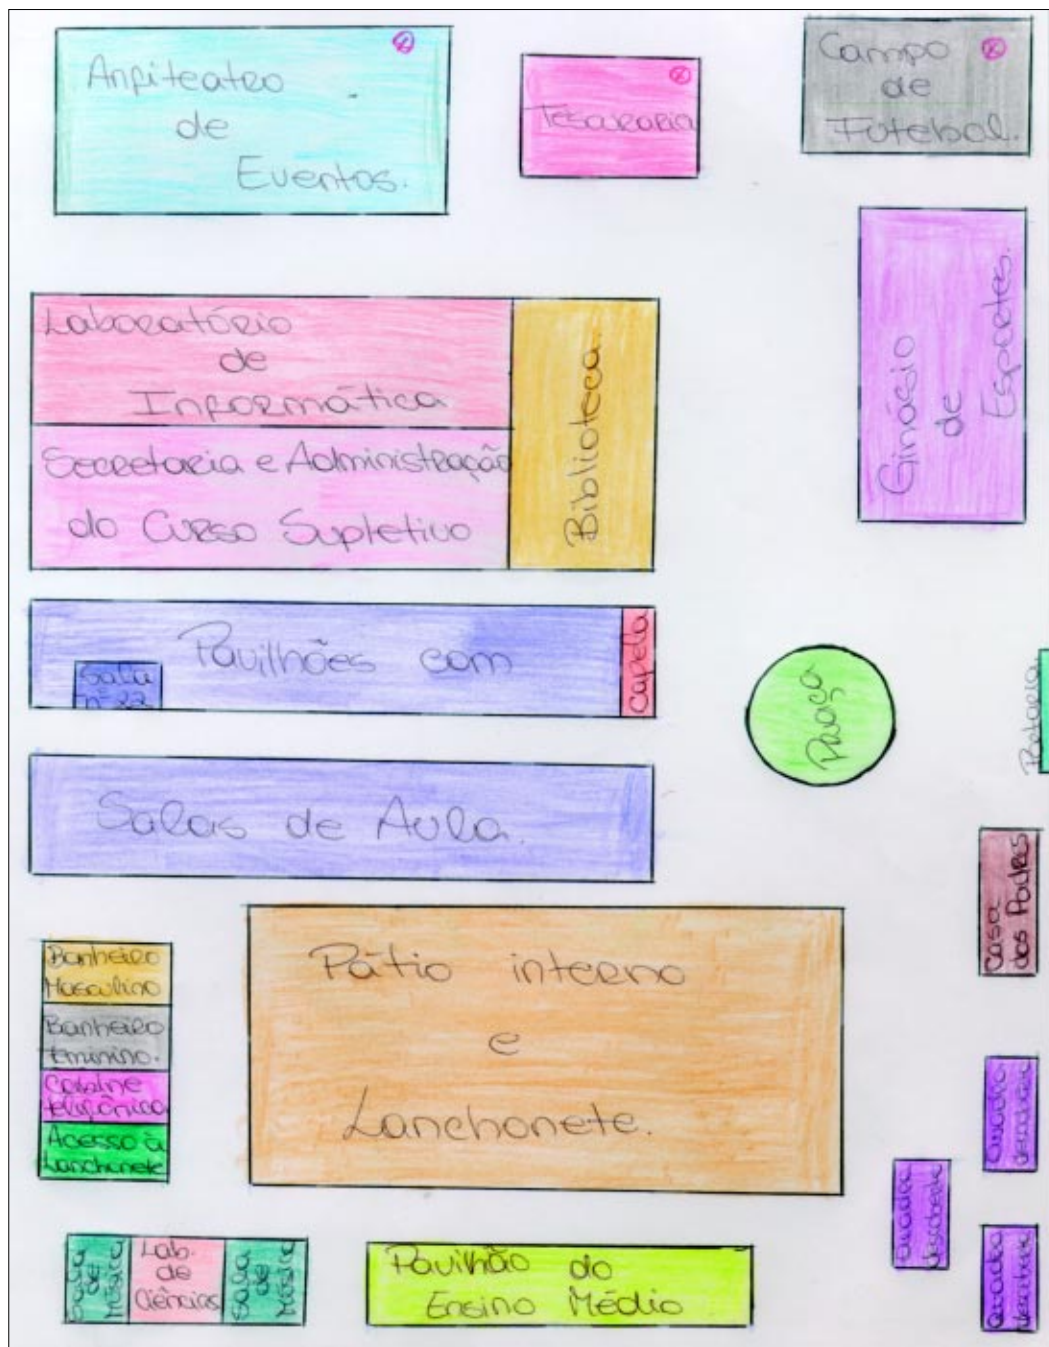 Anfiteatro
de
Eventos.
Tesouraria
Campo
de
Futebol.
Ginásio
de
Esportes.
Laboratório
de
Informática
Secretaria e Administração
do Curso Supletivo
Biblioteca.
Pavilhões com
Sala
nº 22
Capela
Praça
Portaria
Salas de Aula.
Casa
dos Padres
Banheiro
Masculino
Banheiro
Feminino.
Cabine
telefônica
Acesso à
Lanchonete
Pátio interno
e
Lanchonete.
Quadra
descoberta
Quadra
descoberta
Quadra
descoberta
Sala
de
Música
Lab.
de
Ciências
Sala
de
Música
Pavilhão do
Ensino Médio